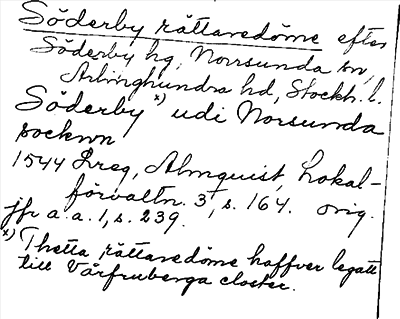 Söderby rättaredöme efter
Söderby hg, Norrsunda sn,
Ärlinghundra hd, Stockh. l.
Söderby x) udi Norsunda
sockwn
1544 Lreg, Almquist, Lokal-
förvaltn. 3, s. 164. orig.
jfr a.a. 1, s. 239.
x) Thetta rättaredöme haffver legatt
till Vårfruberga closter.